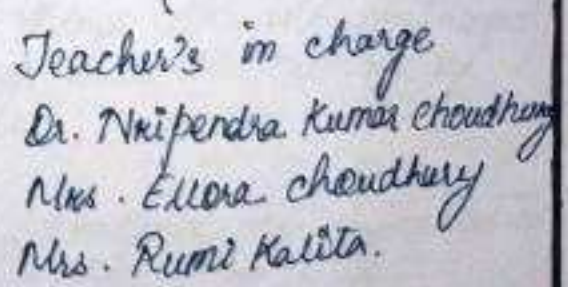 Teacher's in charge
Dr. Nripendra Kumar Choudhury
Mrs. Ellora Choudhury
Mrs. Rumi Kalita.